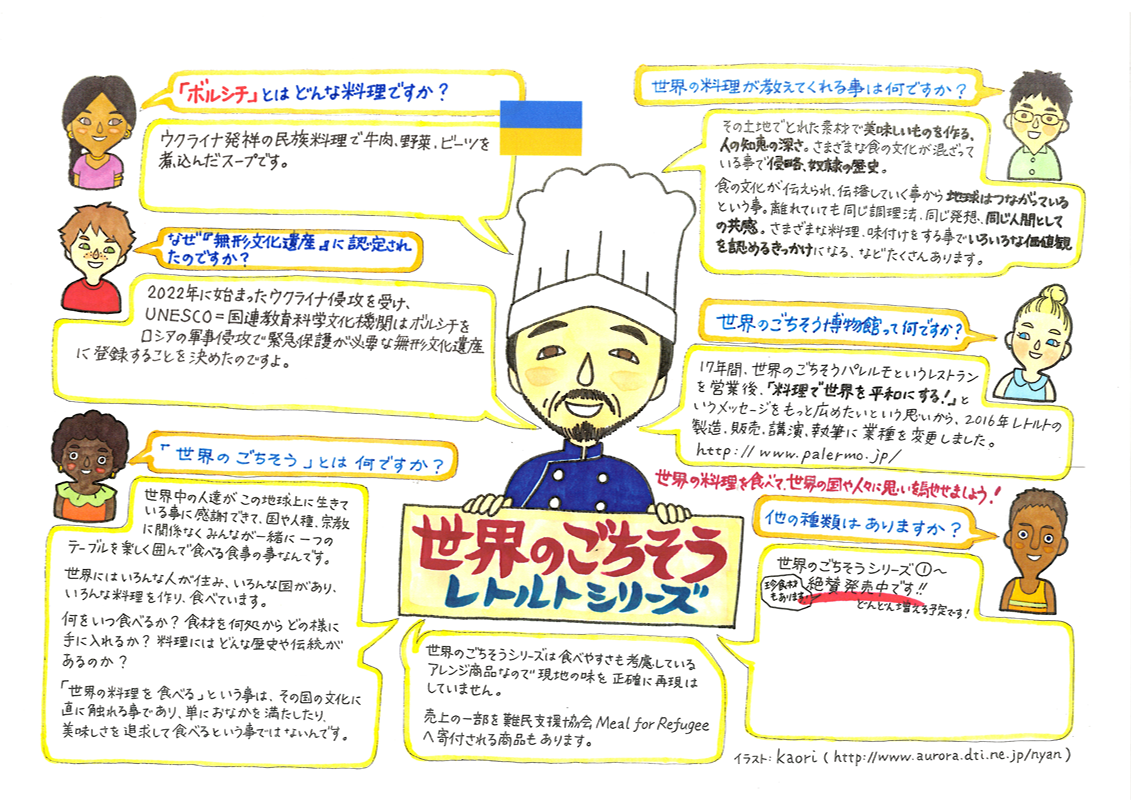 「ボルシチ」とは どんな料理ですか？
ウクライナ発祥の民族料理で牛肉、野菜、ビーツを
煮込んだスープです。
なぜ『無形文化遺産』に認定され
たのですか？
2022年に始まったウクライナ侵攻を受け、
UNESCO＝国連教育科学文化機関はボルシチを
ロシアの軍事侵攻で緊急保護が必要な無形文化遺産
に登録することを決めたのですよ。
「世界のごちそう」とは何ですか？
世界中の人達がこの地球上に生きて
いる事に感謝できて、国や人種、宗教
に関係なくみんなが一緒に一つの
テーブルを楽しく囲んで食べる食事の事なんです。
世界にはいろんな人が住み、いろんな国があり、
いろんな料理を作り、食べています。
何をいつ食べるか？食材を何処からどの様に
手に入れるか？料理にはどんな歴史や伝統が
あるのか？
「世界の料理を食べる」という事は、その国の文化に
直に触れる事であり、単におなかを満たしたり、
美味しさを追求して食べるという事ではないんです。
世界のごちそう
レトルトシリーズ
世界のごちそうシリーズは食べやすさも考慮している
アレンジ商品なので現地の味を正確に再現は
していません。
売上の一部を難民支援協会 Meal for Refugee
へ寄付される商品もあります。
世界の料理が教えてくれる事は何ですか？
その土地でとれた素材で美味しいものを作る、
人の知恵の深さ。さまざまな食の文化が混ざって
いる事で侵略、奴隷の歴史。
食の文化が伝えられ、伝播していく事から地球はつながっている
という事。離れていても同じ調理法、同じ発想、同じ人間として
の共感。さまざまな料理、味付けをする事でいろいろな価値観
を認めるきっかけになる、などたくさんあります。
世界のごちそう博物館って何ですか？
17年間、世界のごちそうパレルモというレストラン
を営業後、「料理で世界を平和にする！」と
いうメッセージをもっと広めたいという思いから、2016年レトルトの
製造、販売、講演、執筆に業種を変更しました。
http://www.palermo.jp/
世界の料理を食べて、世界の国や人々に思いを馳せましょう！
他の種類はありますか？
世界のごちそうシリーズ①～
珍食材
もあります！
絶賛発売中です!!
どんどん増える予定です！
イラスト：kaori（http://www.aurora.dti.ne.jp/nyan）